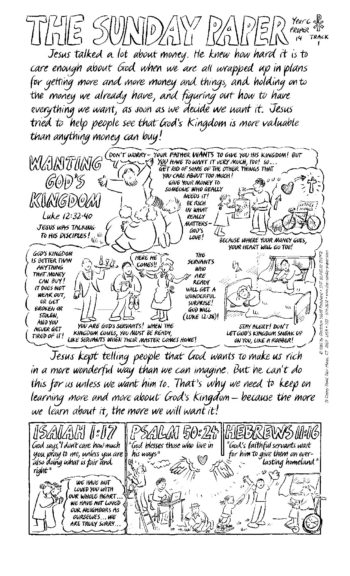 THE SUNDAY PAPER
YEAR C
PROPER
TRACK
Jesus talked a lot about money. He knew how hard it is to
care enough about God when we are all wrapped up in plans
for getting more and more money and things, and holding on to
the money we already have, and figuring out how to have
everything we want, as soon as we decide we want it. Jesus
tried to help people see that God's Kingdom is more valuable
than anything money can buy!
WANTING
GOD'S
KINGDOM
Luke 12:32-40
JESUS WAS TALKING
TO HIS DISCIPLES!
DON'T WORRY- YOUR FATHER WANTS TO GIVE YOU HIS KINGDOM! BUT
YOU HAVE TO WANT IT VERY MUCH, TOO! SO...
GET RID OF SOME OF THE OTHER THINGS THAT
YOU CARE ABOUT TOO MUCH!
GIVE YOUR MONEY TO
SOMEONE WHO REALLY
NEEDS IT!
BE RICH
IN WHAT
REALLY
MATTERS-
GOD'S
LOVE!
BECAUSE WHERE YOUR MONEY GOES,
YOUR HEART WILL GO TOO!
GOD'S KINGDOM
IS BETTER THAN
ANYTHING
THAT MONEY
CAN BUY!
IT DOES NOT
WEAR OUT,
OR GET
BROKEN OR
STOLEN,
AND YOU
NEVER GET
TIRED OF IT!
HERE HE
COMES!!
YOU ARE GOD'S SERVANTS! WHEN THE
KINGDOM COMES, YOU MUST BE READY,
LIKE SERVANTS WHEN THEIR MASTER COMES HOME!
THE
SERVANTS
WHO
ARE
READY
WILL GET A
WONDERFUL
SURPRISE!
GOD WILL
STAY ALERT! DON'T
LET GOD'S KINGDOM SNEAK UP
ON YOU, LIKE A ROBBER!
Jesus kept telling people that God wants to make us rich
in a more wonderful way than we can imagine. But he can't do
this for us unless we want him to. That's why we need to keep on
learning more and more about God's Kingdom - because the more
we learn about it, the more we will want it!
ISAIAH 1:17
God says, "I don't care how much
you pray to me, unless you are
also doing what is fair and
right"
WE HAVE NOT
LOVED YOU WITH
OUR WHOLE HEART...
WE HAVE NOT LOVED
OUR NEIGHBORS AS
OURSELVES... WE
ARE TRULY SORRY...
PSALM 50:24
"God blesses those who live in
his ways"
HEBREWS 11:16
"God's faithful servants wait
for him to give them an ever-
lasting homeland"